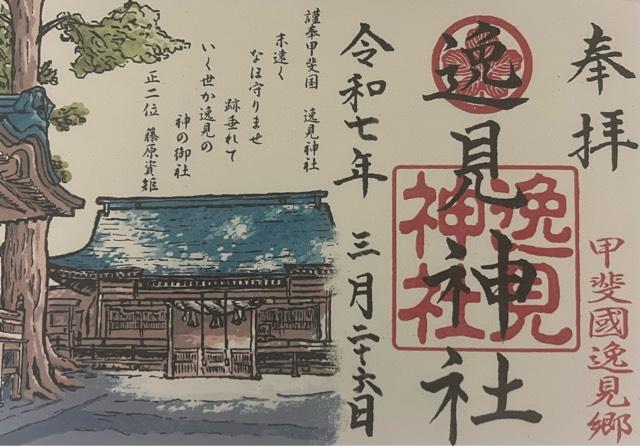 奉拝
甲斐國逸見郷
逸見神社
逸見
神社
令和七年 三月二十六日
謹奉甲斐国 逸見神社
末遠く
なほ守りませ
跡垂れて
いく世か逸見の
神の御社
正二位 藤原資雅